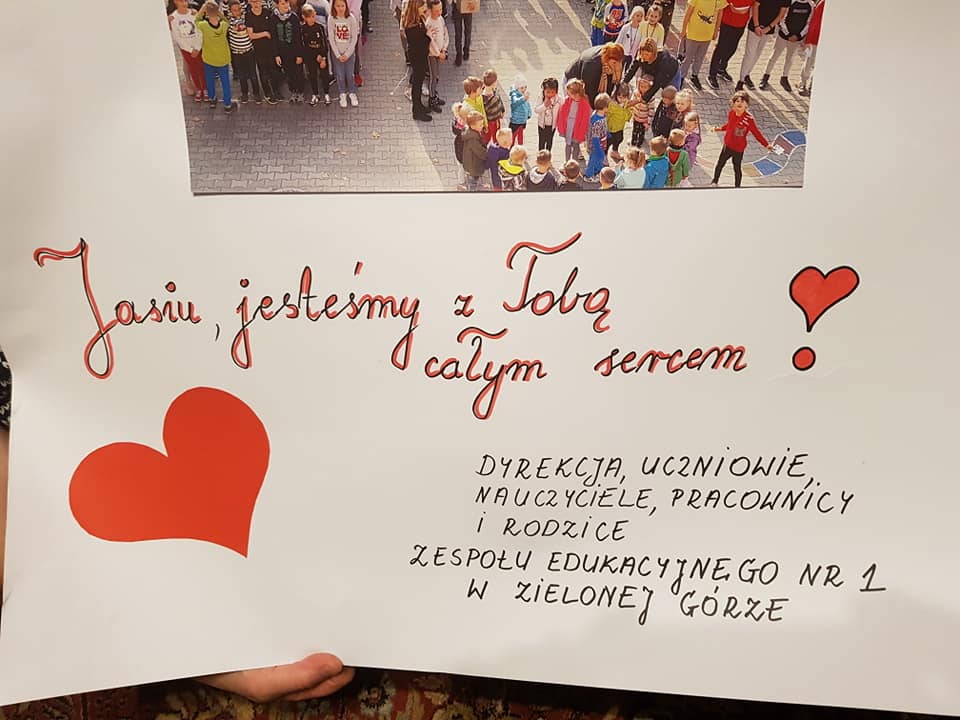 LOVE
Jasiu, jesteśmy z Tobą
całym sercem!
DYREKCJA, UCZNIOWIE,
NAUCZYCIELE, PRACOWNICY
I RODZICE
ZESPOŁU EDUKACYJNEGO NR 1
W ZIELONEJ GÓRZE